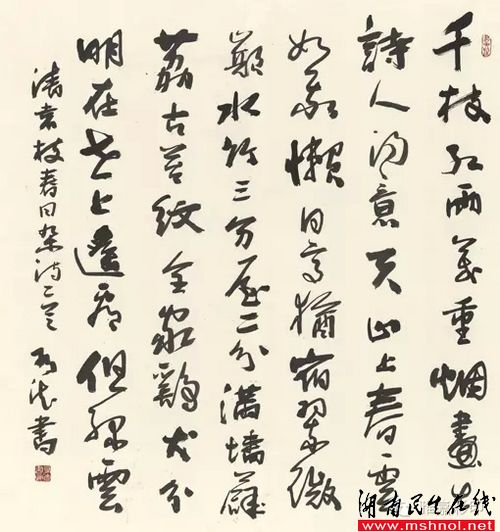 千枝红雨万重烟畫出
詩人得意天山上春雲
如我懒日高猶宿翠微
巅水竹三分屋二分满墙薜
荔古苔纹全家鷄犬分
明在世上遥看但绿雲
清袁枚春日杂诗二首 书
湖南民生在线
www.mshnol.net